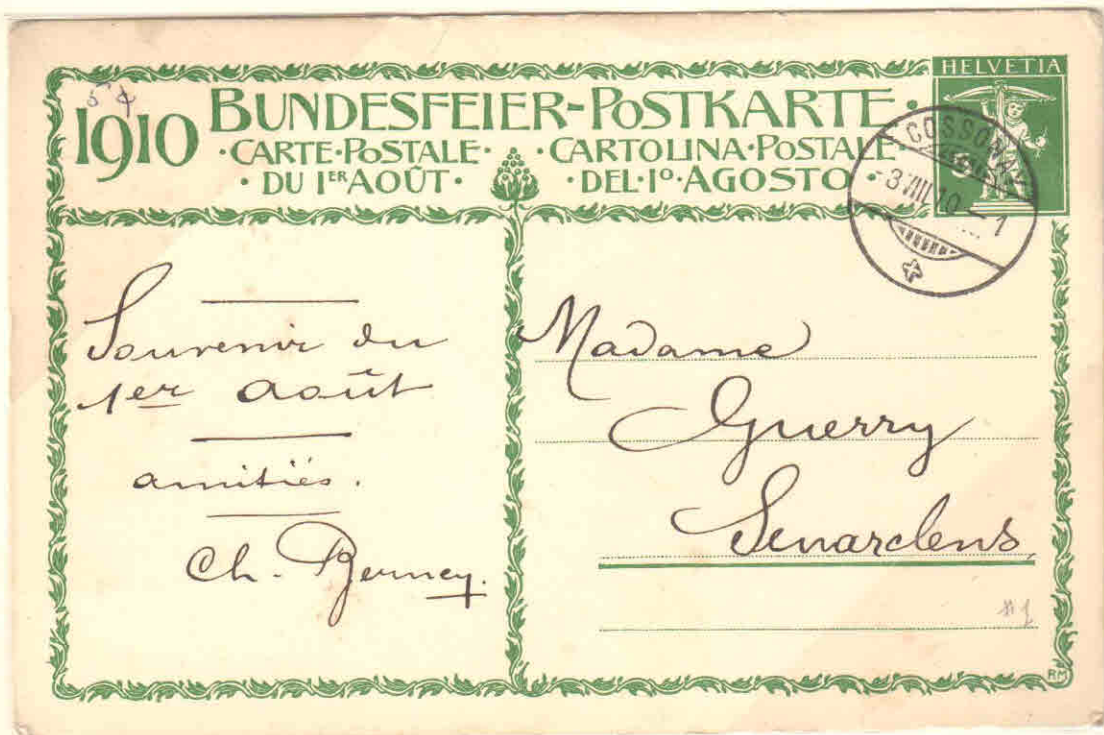 HELVETIA
5 ¢
1910 BUNDESFEIER-POSTKARTE·
·CARTE·POSTALE· ·CARTOLINA·POSTALE
·DU 1ER AOÛT· ·DEL·1º·AGOSTO
COSSONAY
-3.VIII.10.-1
Souvenir du
1er août
amitiés.
Ch. Berney.
Madame
Guerry
Senarclens
#1
RM